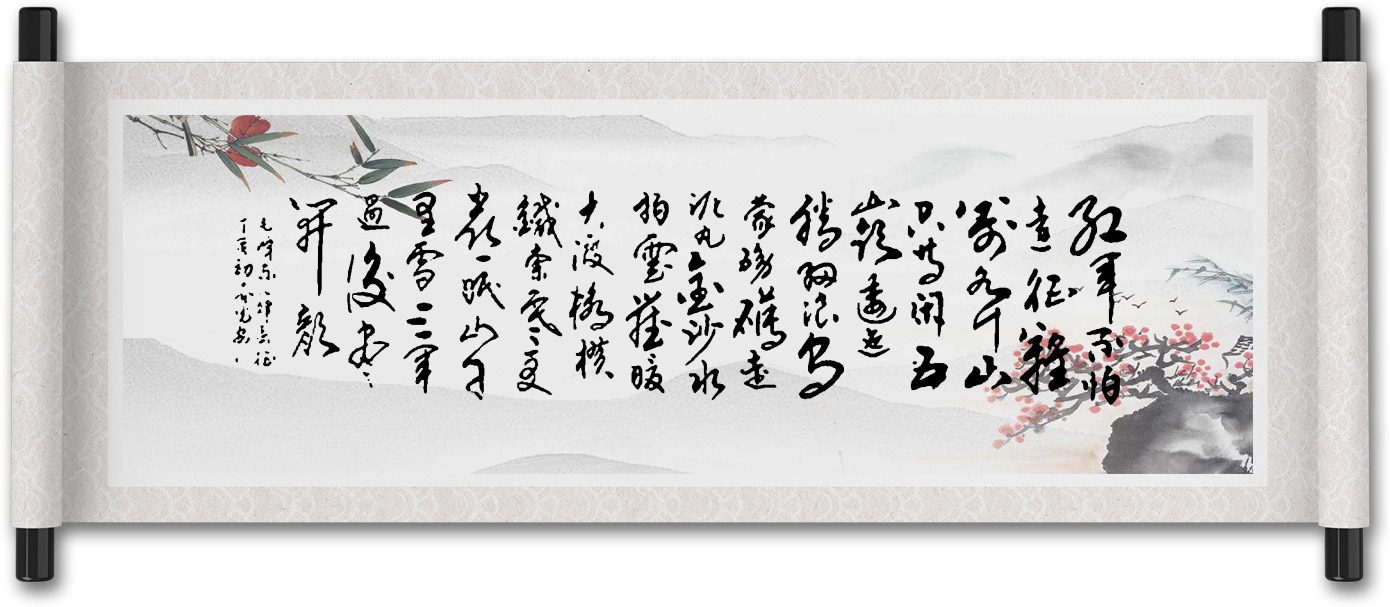 紅軍不怕
遠征難
萬水千山
只等閑五
嶺逶迤
騰細浪烏
蒙磅礴走
泥丸金沙水
拍雲崖暖
大渡橋橫
鐵索寒更
喜岷山千
里雪三軍
過後盡
開顏
毛澤東七律長征
丁亥初